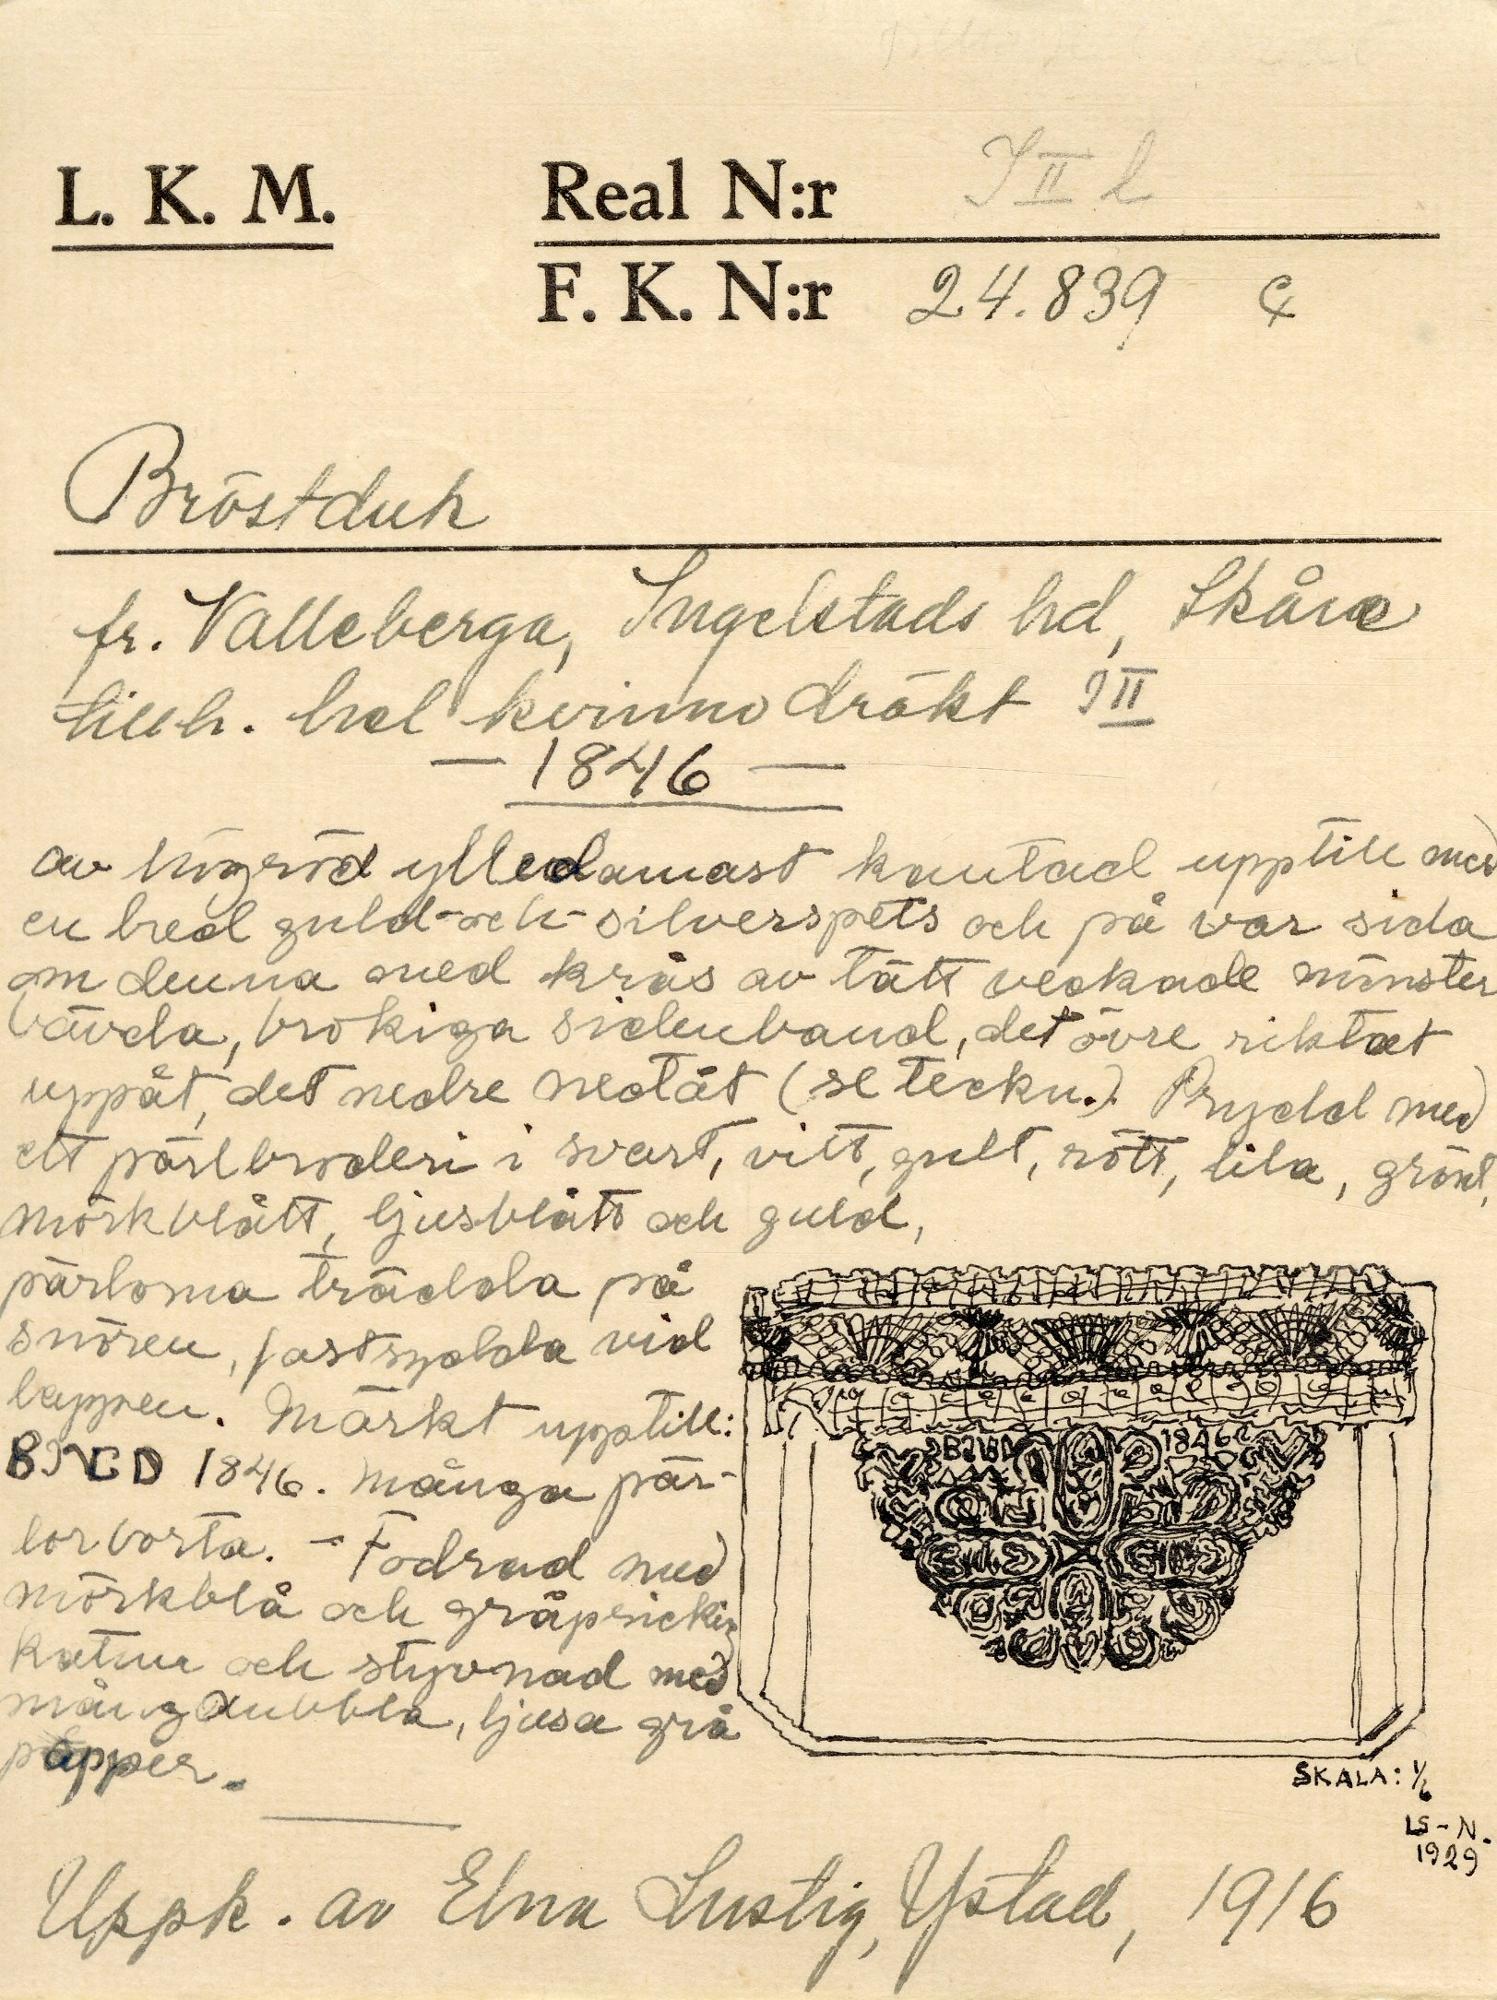 L. K. M. Real N:r I II l
F. K. N:r 24.839 c
Bröstduk
fr. Valleberga, Ingelstads hd, Skåne
tillh. hel kvinnodräkt I II
— 1846 —
av högröd ylledamast kantad upptill med
en bred guld-och-silverspets och på var sida
om denna med krås av tätt veckade mönster
vävda, brokiga sidenband, det övre riktat
uppåt, det nedre nedåt (se teckn.). Prydd med
ett pärlbroderi i svart, vitt, gult, rött, lila, grönt,
mörkblått, ljusblått och guld,
pärlorna trädda på
snören, fastsydda vid
lappen. Märkt upptill:
1846. Många pär-
lor borta. - Fodrad med
mörkblå och gråprickig
katun och styvnad med
mångdubbla, ljusa grå
papper.
1846
SKALA: 1/6
LS-N.
1929
Uppk. av Elna Lustig, Ystad, 1916